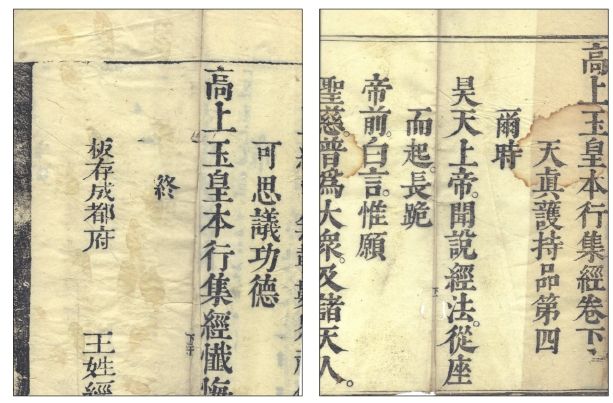 高上玉皇本行集經卷下
天眞護持品第四
爾時
昊天上帝聞說經法。從座
而起。長跪
帝前。白言。惟願
聖慈。普爲大衆。及諸天人。
可思議功德
高上玉皇本行集經懺悔
終
板存成都府 王姓經